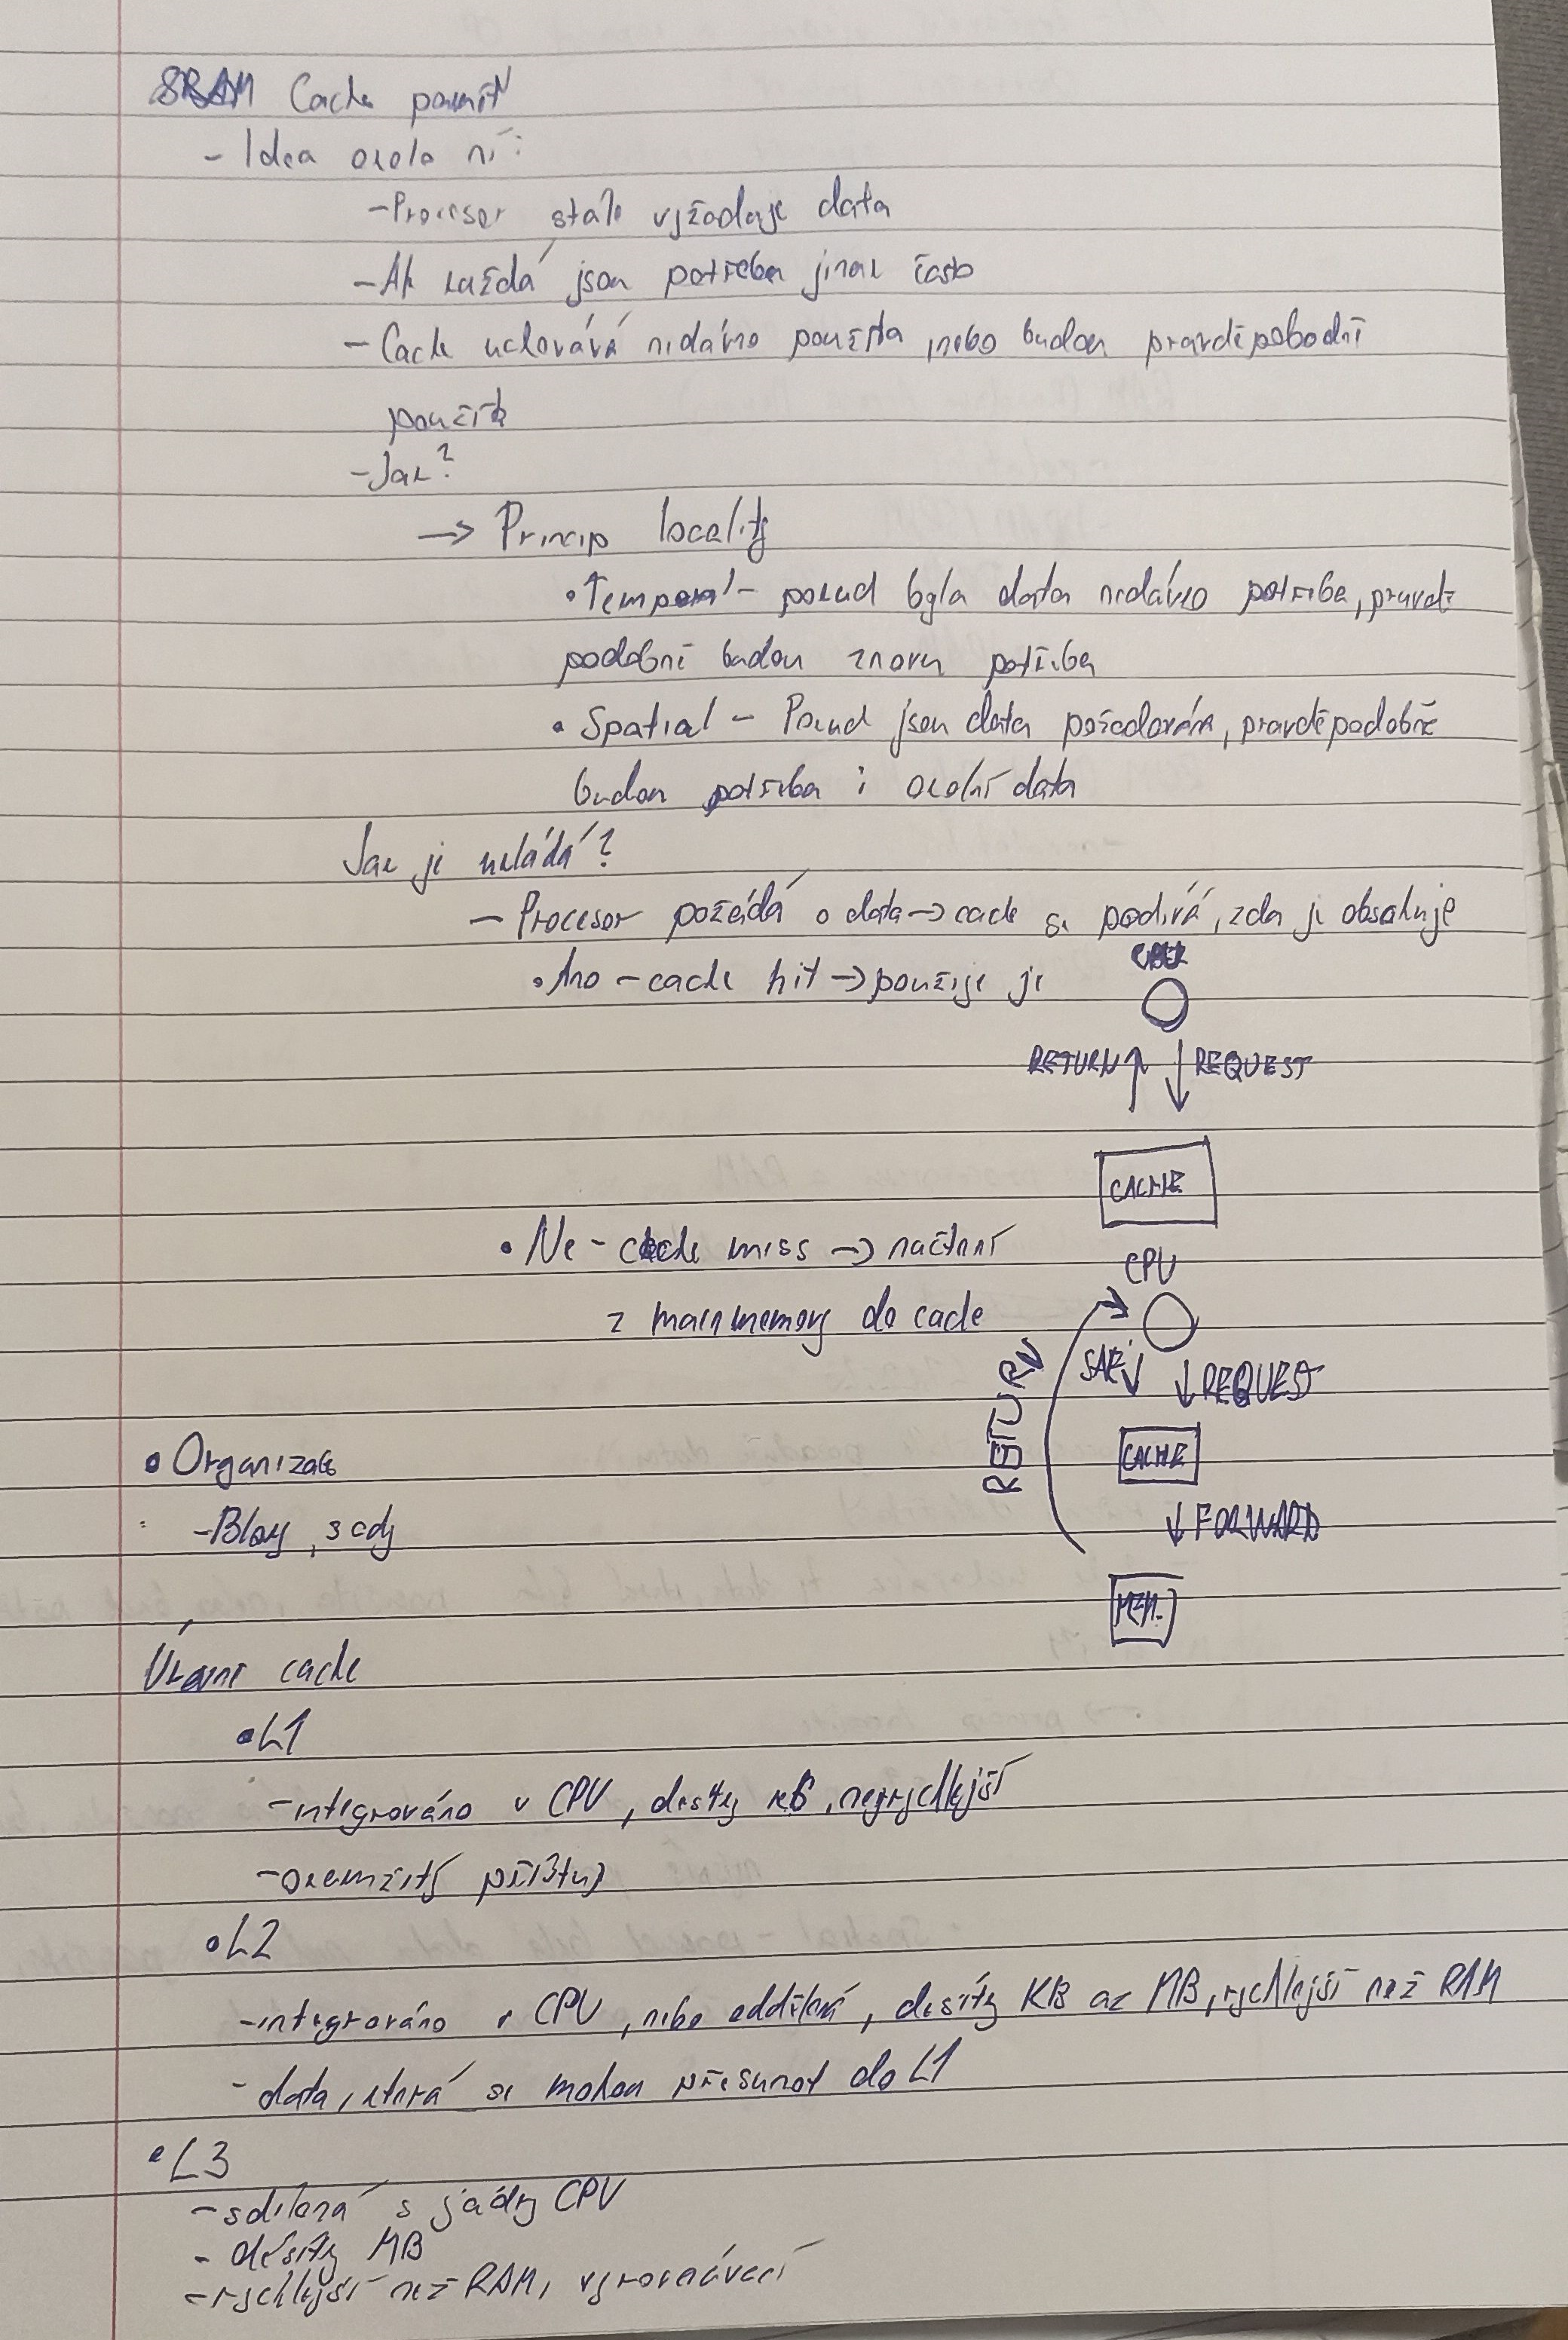 SRAM Cache paměť
- Idea okolo ní:
- Procesor stále vyžaduje data
- Ale každá jsou potřeba jinak často
- Cache uchovává nedávno použita, nebo budou pravděpobodně
použita
- Jak?
→ Princip locality
• Temporal - pokud byla data nedávno potřeba, pravdě
podobně budou znovu potřeba
• Spatial - Pokud jsou data požadována, pravděpodobně
budou potřeba i okolní data
Jak je ukládá?
- Procesor požádá o data → cache se podívá, zda je obsahuje
• Ano - cache hit → použije je
RETURN ↑ ↓ REQUEST
CACHE
• Ne - cache miss → načtení
CPU
z main memory do cache
RETURN
↓ ↓ REQUEST
CACHE
• Organizace
- Bloky, sady
↓ FORWARD
MEM.
Úrovně cache
• L1
- integrováno v CPU, desítky kB, nejrychlejší
- okamžitý přístup
• L2
- integrováno v CPU, nebo oddělená, desítky KB až MB, rychlejší než RAM
- data, která se mohou přesunot do L1
• L3
- sdílená s jádry CPU
- desítky MB
- rychlejší než RAM, vyrovnávací